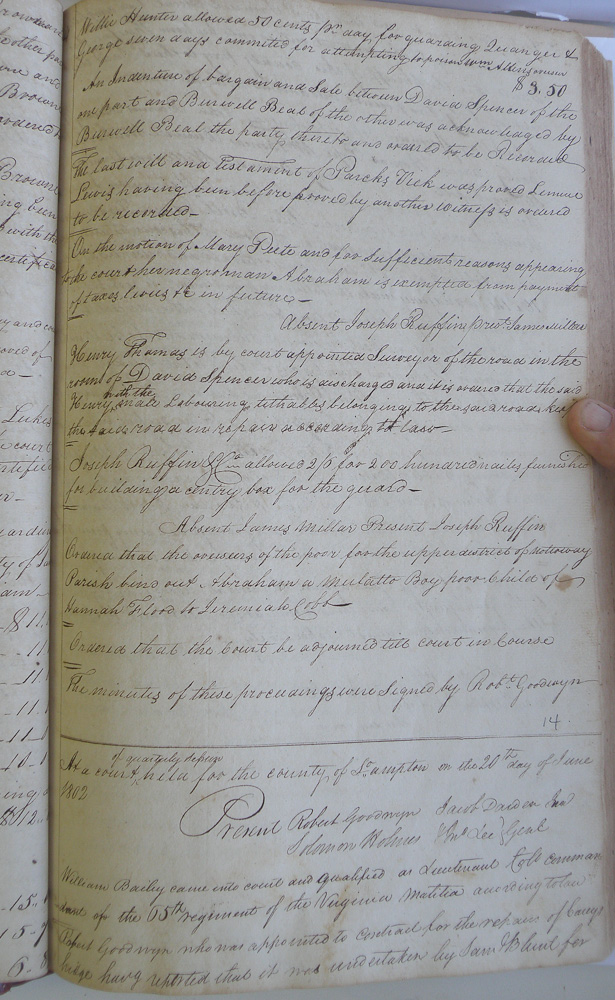 Willie Hunter allowed 50 cents pr day for guarding Quanger &
George seven days committed for attempting to poison Wm
$3.50
An Indenture of bargain and Sale between David Spencer of the
one part and Burwell Beal of the other was acknowledged by
Burwell Beal the party thereto and ordered to be Recorded
The last will and testament of Parcks Vick was proved Lemuel
Lewis having been before proved by another witness is ordered
to be recorded
On the motion of Mary Peete and for sufficient reasons appearing
to the court her negro man Abraham is exempted from payment
of taxes levies &c in future
Absent Joseph Ruffin Prest James Millar
Henry Thomas is by court appointed Surveyor of the road in the
room of David Spencer who is discharged and it is ordered that the said
Henry with the male Labouring tithables belonging to the said road keep
the said road in repair according to law
Joseph Ruffin & Co allowed 2/3 for 200 hundred nails furnished
for building a centry box for the guard
Absent James Millar Present Joseph Ruffin
Ordered that the overseers of the poor for the upper district of Nottoway
Parish bind out Abraham a Mulatto Boy poor Child of
Hannah Flood to Jeremiah Cobb
Ordered that the Court be adjourned till court in Course
The minutes of these proceedings were Signed by Robt Goodwyn
14
At a court of quarterly session held for the county of So ampton on the 20th day of June
1802
Present Robert Goodwyn Jacob Darden
Solomon Holmes & Lee Gent
William Bailey came into court and qualified as Lieutenant Colo comman
dant of the 65th regiment of the Virginia Malitia according to law
Robert Goodwyn who was appointed to contract for the repairs of
bridge havg reported that it was undertaken by Saml Blunt for